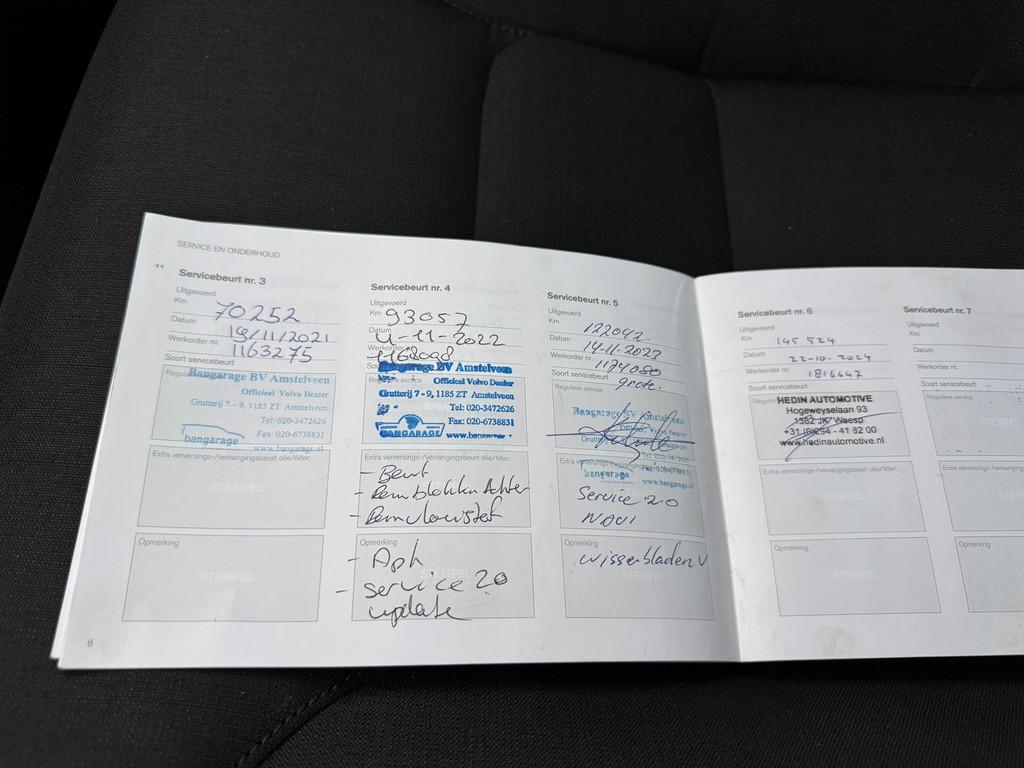 SERVICE EN ONDERHOUD
Servicebeurt nr. 3
Uitgevoerd
Km 70252
Datum 19/11/2021
Werkorder nr. 1163275
Soort servicebeurt
Bangarage BV Amstelveen
Officieel Volvo Dealer
Grutterij 7 - 9, 1185 ZT Amstelveen
Tel: 020-3472626
Fax: 020-6738831
bangarage www.bangarage.nl
Extra verversings-/vervangingsbeurt olie/filter:
STEMPEL
Opmerking
STEMPEL
8
Servicebeurt nr. 4
Uitgevoerd
Km 93057
Datum 4-11-2022
Werkorder 1168098
Bangarage BV Amstelveen
Officieel Volvo Dealer
Grutterij 7 - 9, 1185 ZT Amstelveen
Tel: 020-3472626
Fax: 020-6738831
BANGARAGE www.bangarage.nl
Extra verversings-/vervangingsbeurt olie/filter:
- Beurt
- Remblokken Achter
- Remvloeistof
Opmerking
- Apk
- service 2.0
update
Servicebeurt nr. 5
Uitgevoerd
Km 122042
Datum 14-11-2023
Werkorder nr. 1174050
Soort servicebeurt grote.
Reguliere service
Bangarage BV Amstelveen
bangarage www.bangarage.nl
Service 2.0
NAVI
Opmerking
wisserbladen V
Servicebeurt nr. 6
Uitgevoerd
Km 145 524
Datum 22-10-2024
Werkorder nr. 1816447
Soort servicebeurt
HEDIN AUTOMOTIVE
Hogeweyselaan 93
1382 JK Weesp
+31 (0)294 - 41 82 00
www.hedinautomotive.nl
Extra verversings-/vervangingsbeurt olie/filter:
STEMPEL
Opmerking
STEMPEL
Servicebeurt nr. 7
Uitgevoerd
Km
Datum
Werkorder nr.
Soort servicebeurt
Reguliere service
Extra verversings-/vervangingsbeurt
Opmerking